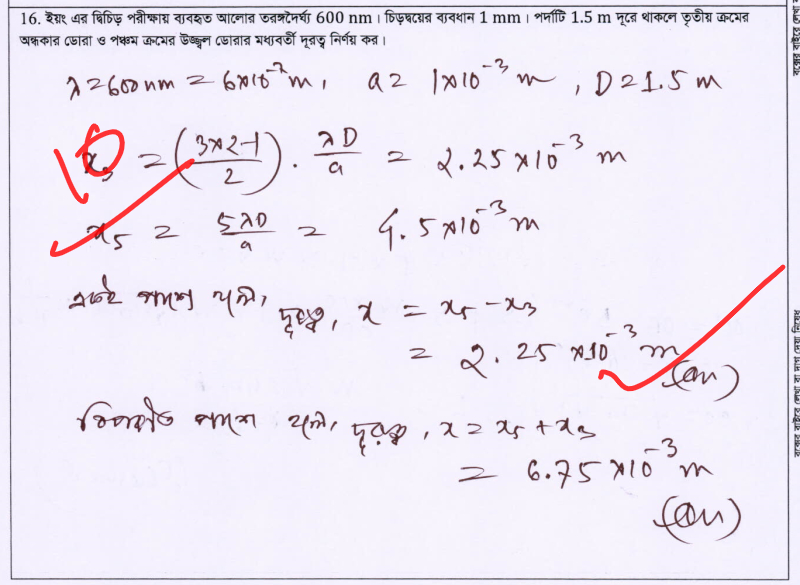 16. ইয়ং এর দ্বিচিড় পরীক্ষায় ব্যবহৃত আলোর তরঙ্গদৈর্ঘ্য 600 nm। চিড়দ্বয়ের ব্যবধান 1 mm। পর্দাটি 1.5 m দূরে থাকলে তৃতীয় ক্রমের
অন্ধকার ডোরা ও পঞ্চম ক্রমের উজ্জ্বল ডোরার মধ্যবর্তী দূরত্ব নির্ণয় কর।
λ = 600 nm = 6×10⁻⁷ m, a = 1×10⁻³ m, D = 1.5 m
10
x₃ = (3×2-1/2) · λD/a = 2.25×10⁻³ m
x₅ = 5λD/a = 4.5×10⁻³ m
একই পাশে হলে, দূরত্ব, x = x₅ - x₃
= 2.25 ×10⁻³ m
(Ans)
বিপরীত পাশে হলে, দূরত্ব, x = x₅ + x₃
= 6.75 ×10⁻³ m
(Ans)